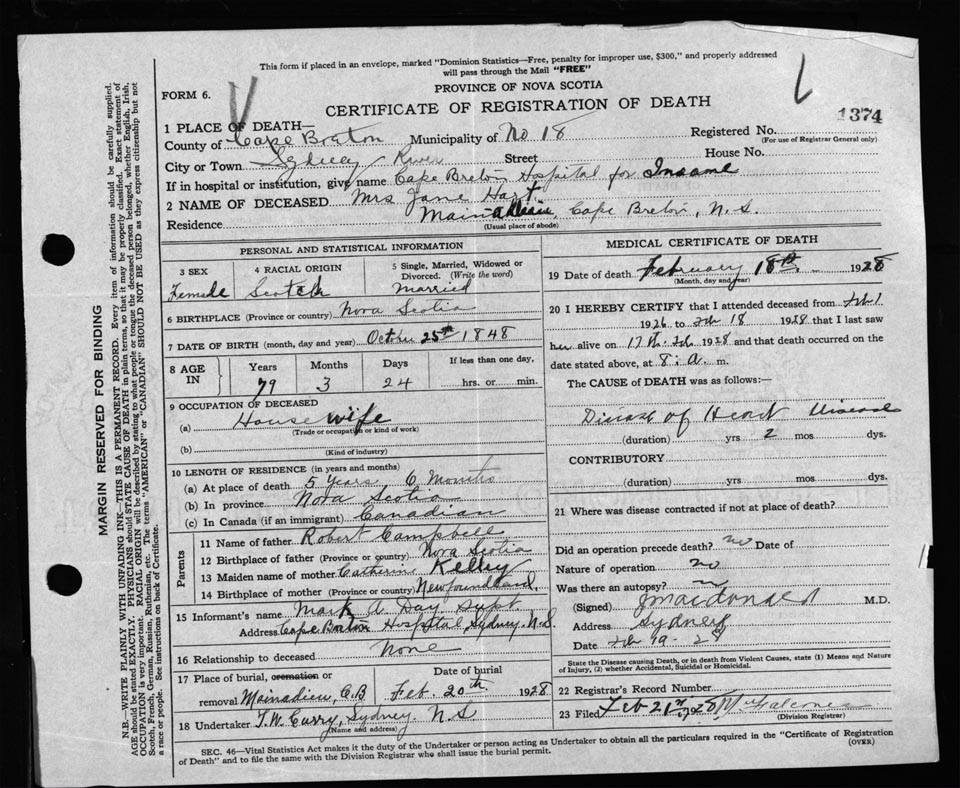 This form if placed in an envelope, marked "Dominion Statistics—Free, penalty for improper use, $300," and properly addressed
will pass through the Mail "FREE"
PROVINCE OF NOVA SCOTIA
FORM 6.
CERTIFICATE OF REGISTRATION OF DEATH
1374
1 PLACE OF DEATH—
County of Cape Breton Municipality of No. 18 Registered No.
(For use of Registrar General only)
City or Town Sydney River Street House No.
If in hospital or institution, give name Cape Breton Hospital for Insane
2 NAME OF DECEASED Mrs Jane Hart
Residence Mainadieu, Cape Breton, N.S.
(Usual place of abode)
PERSONAL AND STATISTICAL INFORMATION
3 SEX
Female
4 RACIAL ORIGIN
Scotch
5 Single, Married, Widowed or
Divorced. (Write the word)
Married
6 BIRTHPLACE (Province or country) Nova Scotia
7 DATE OF BIRTH (month, day and year) 25th 1848
8 AGE IN
Years Months Days If less than one day,
79 3 24 hrs. or min.
9 OCCUPATION OF DECEASED
(a) House wife
(Trade or occupation or kind of work)
(b)
(Kind of industry)
10 LENGTH OF RESIDENCE (in years and months)
(a) At place of death 5 Years 6 Months
(b) In province Nova Scotia
(c) In Canada (if an immigrant) Canadian
Parents
11 Name of father Robert Campbell
12 Birthplace of father (Province or country) Nova Scotia
13 Maiden name of mother Catherine Kelly
14 Birthplace of mother (Province or country) Newfoundland,
15 Informant's name Day Supt.
Address Cape Breton Hospital, Sydney. N.S.
16 Relationship to deceased None
17 Place of burial, cremation or Date of burial
removal Mainadieu, C.B Feb. 20th 1928
18 Undertaker T.W. Curry, Sydney. N S
(Name and address)
MEDICAL CERTIFICATE OF DEATH
19 Date of death February 18th 1928
(Month, day and year)
20 I HEREBY CERTIFY that I attended deceased from Feb 1
1926 to Feb 18 1928 that I last saw
her alive on 17th Feb 1928 and that death occurred on the
date stated above, at 8: A. m.
The CAUSE of DEATH was as follows:—
Disease of Heart
(duration) yrs 2 mos dys.
CONTRIBUTORY
(duration) yrs mos dys.
21 Where was disease contracted if not at place of death?
Did an operation precede death? no Date of
Nature of operation no
Was there an autopsy? no
(Signed) J Macdonald M.D.
Address Sydney
Date Feb 19-28
State the Disease causing Death, or in death from Violent Causes, state (1) Means and Nature
of Injury, (2) whether Accidental, Suicidal or Homicidal.
22 Registrar's Record Number
23 Filed Feb 21st 1928
(Division Registrar)
SEC. 46—Vital Statistics Act makes it the duty of the Undertaker or person acting as Undertaker to obtain all the particulars required in the "Certificate of Registration
of Death" and to file the same with the Division Registrar who shall issue the burial permit. (OVER)
MARGIN RESERVED FOR BINDING
N.B.—WRITE PLAINLY WITH UNFADING INK—THIS IS A PERMANENT RECORD. Every item of information should be carefully supplied.
AGE should be stated EXACTLY. PHYSICIANS should STATE CAUSE OF DEATH in plain terms, so that it may be properly classified. Exact statement of
OCCUPATION is very important. RACIAL ORIGIN will be described by stating to what people or tongue the deceased person belonged, whether English, Irish,
Scotch, French, German, Russian, Ruthenian, etc. The terms "AMERICAN" or "CANADIAN" SHOULD NOT BE USED as they express citizenship but not
a race or people. See instructions on back of Certificate.